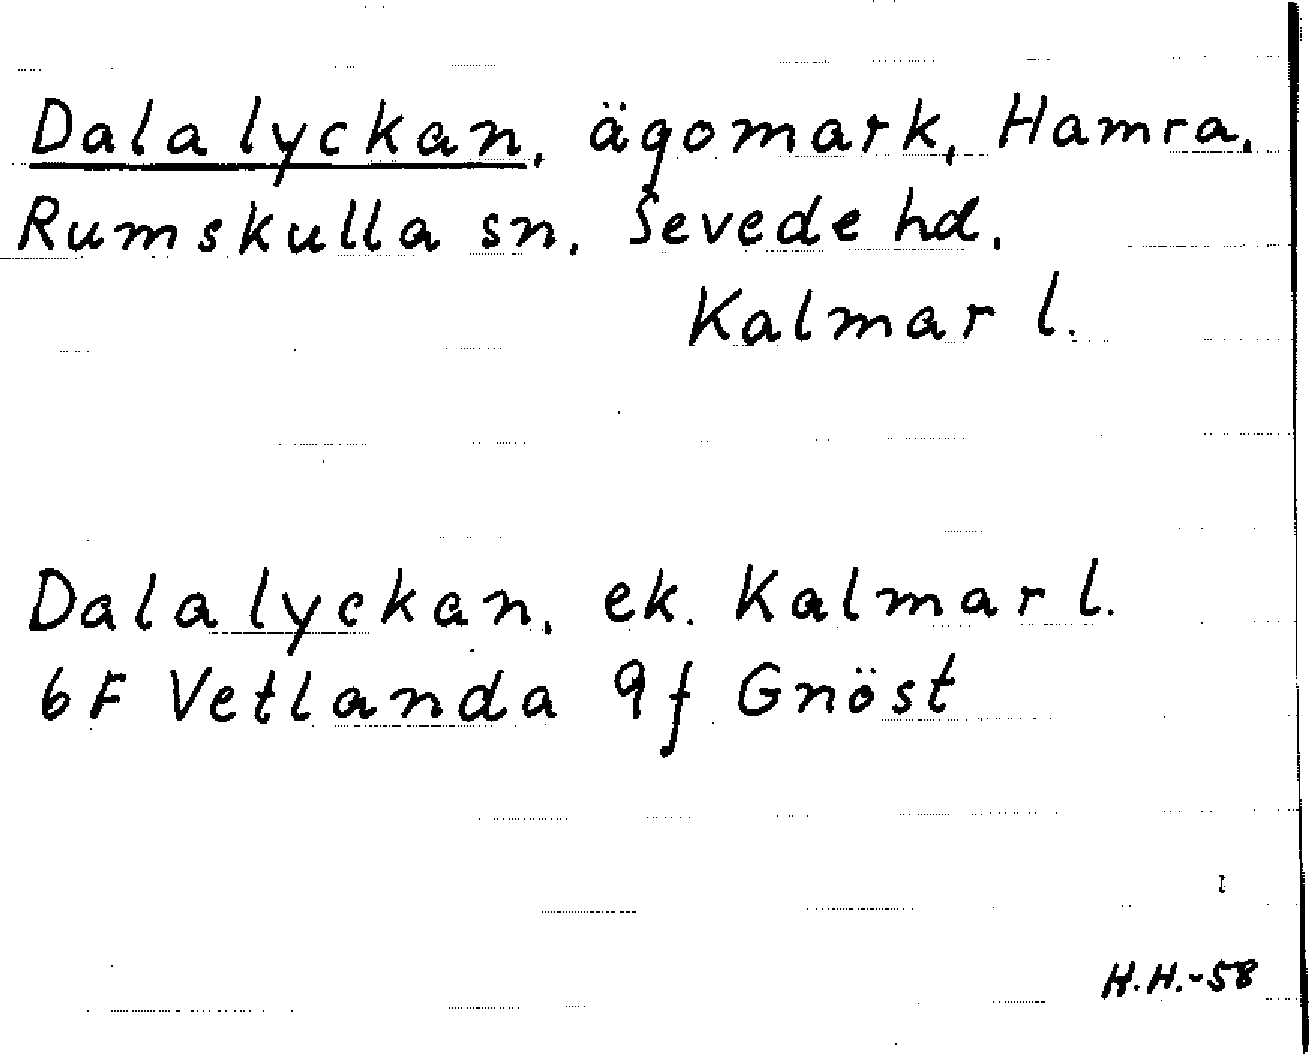 Dalalyckan, ägomark, Hamra,
Rumskulla sn, Sevede hd,
Kalmar l.
Dalalyckan, ek. Kalmar l.
6F Vetlanda 9f Gnöst
H.H.-58